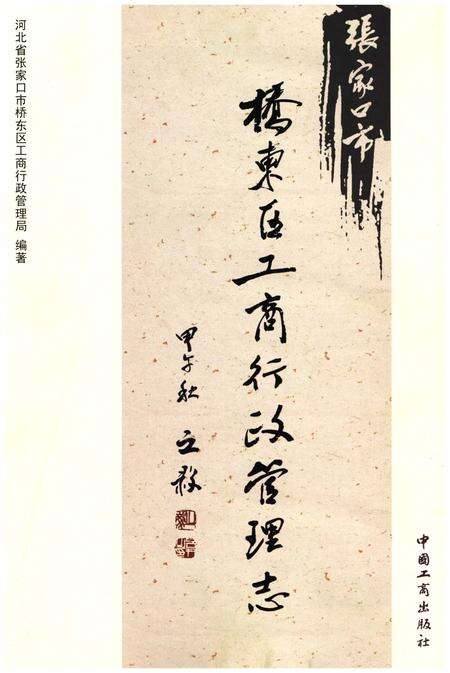 張家口市
橋東区工商行政管理志
甲午秋
河北省张家口市桥东区工商行政管理局 编著
中國工商出版社